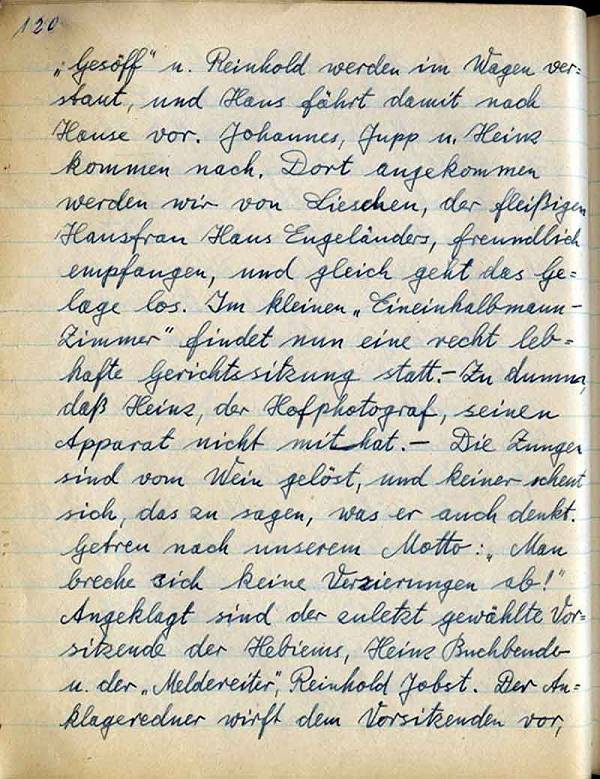 120
„Gesöff“ u. Reinhold werden im Wagen ver=
staut, und Hans fährt damit nach
Hause vor. Johannes, Jupp u. Heinz
kommen nach. Dort angekommen
werden wir von Lieschen, der fleißigen
Hausfrau Hans Engeländers, freundlich
empfangen, und gleich geht das Ge=
lage los. Im kleinen „Eineinhalbmann-
Zimmer“ findet nun eine recht leb=
hafte Gerichtssitzung statt.- Zu dumm,
daß Heinz, der Hofphotograf, seinen
Apparat nicht mit hat.- Die Zungen
sind vom Wein gelöst, und keiner scheut
sich, das zu sagen, was er auch denkt.
Getreu nach unserem Motto: „Man
breche sich keine Verzierungen ab!“
Angeklagt sind der zuletzt gewählte Vor=
sitzende der Hebiems, Heinz Buchbender
u. der „Meldereiter“, Reinhold Jobst. Der An=
klageredner wirft dem Vorsitzenden vor,